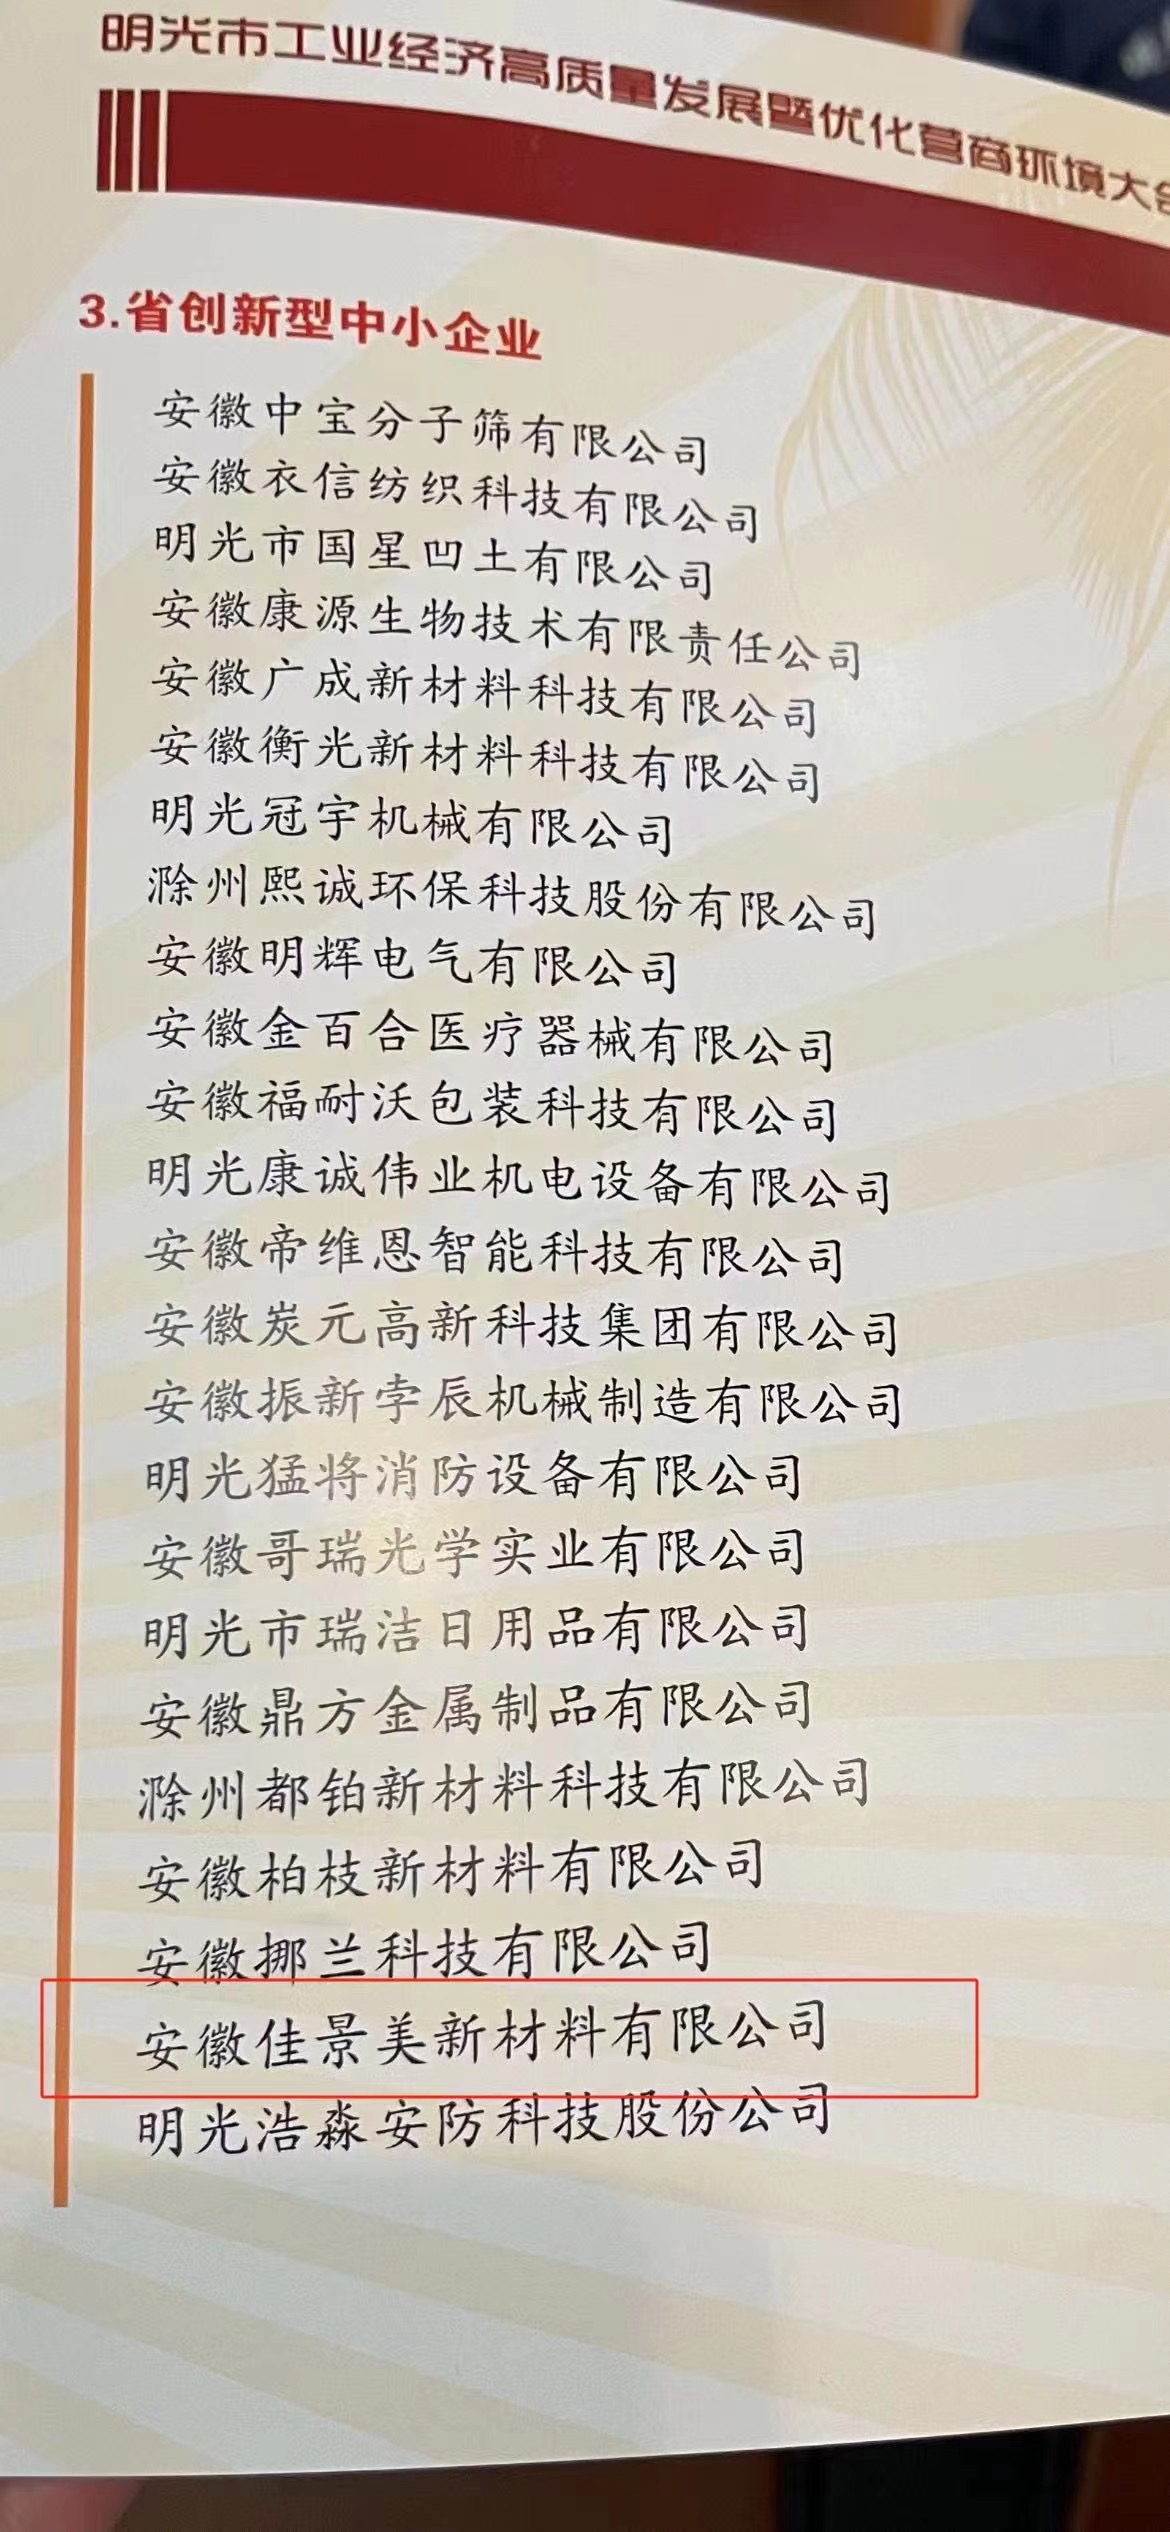 明光市工业经济高质量发展暨优化营商环境大会
3.省创新型中小企业
安徽中宝分子筛有限公司
安徽衣信纺织科技有限公司
明光市国星凹土有限公司
安徽康源生物技术有限责任公司
安徽广成新材料科技有限公司
安徽衡光新材料科技有限公司
明光冠宇机械有限公司
滁州熙诚环保科技股份有限公司
安徽明辉电气有限公司
安徽金百合医疗器械有限公司
安徽福耐沃包装科技有限公司
明光康诚伟业机电设备有限公司
安徽帝维恩智能科技有限公司
安徽炭元高新科技集团有限公司
安徽振新孛辰机械制造有限公司
明光猛将消防设备有限公司
安徽哥瑞光学实业有限公司
明光市瑞洁日用品有限公司
安徽鼎方金属制品有限公司
滁州都铂新材料科技有限公司
安徽柏枝新材料有限公司
安徽挪兰科技有限公司
安徽佳景美新材料有限公司
明光浩淼安防科技股份公司